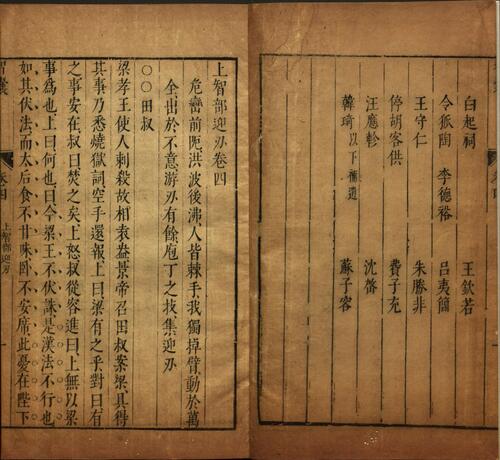 白起祠　王欽若
令狐陶　李德裕　呂夷簡
王守仁　朱勝非
停胡客供　費子充
汪應軫　沈啓
韓琦以下補遺　蘇子容
上智部迎刃卷四
危巒前阨洪波後沸人皆棘手我獨掉臂動於萬
全出於不意游刃有餘庖丁之技集迎刃
○○田叔
梁孝王使人刺殺故相袁盎景帝召田叔案梁具得
其事乃悉燒獄詞空手還報上曰梁有之乎對曰有
之事安在叔曰焚之矣上怒叔從容進曰上無以梁
事為也上曰何也曰今梁王不伏誅是漢法不行也
如其伏法而太后食不甘味臥不安席此憂在陛下
上智部迎刃